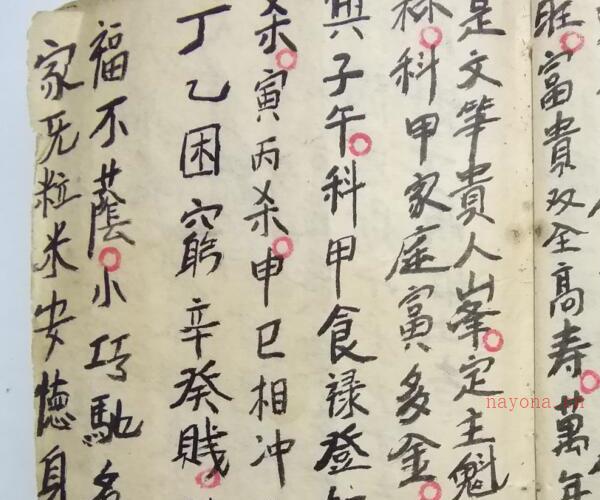 旺。富貴双全高寿。萬年
是文筆貴人山峯。定主魁
林。科甲家庭富多金。
與子午。科甲食禄登
杀。寅丙杀。申巳相冲
丁乙困窮辛癸賤。
福不蔭。小巧馳名
家旡粒米安憓身
nayona.cn